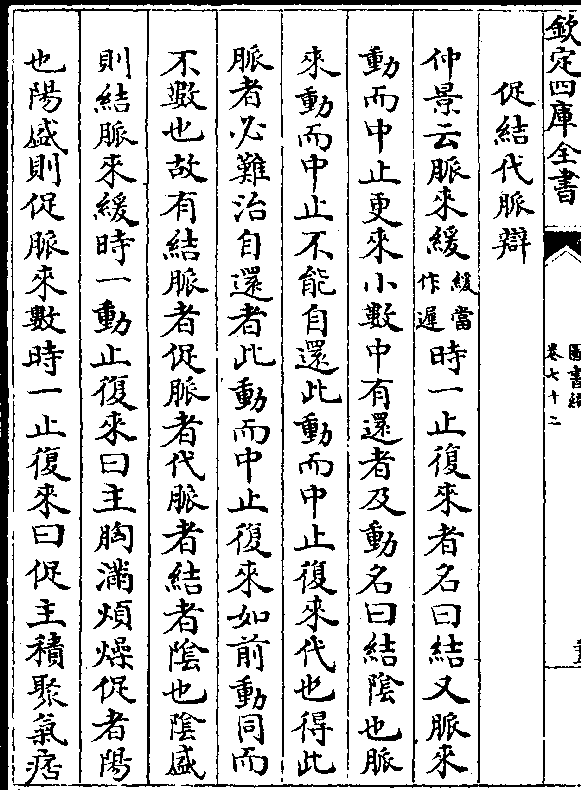 欽定四庫全書
卷七十二
促結代脈辯
仲景云脈來緩緩當作遲時一止復來者名曰結又脈來
動而中止更來小數中有還者及動名曰結陰也脈
來動而中止不能自還此動而中止復來代也得此
脈者必難治自還者此動而中止復來如前動同而
不數也故有結脈者促脈者代脈者結者陰也陰盛
則結脈來緩時一動止復來曰主胸滿煩燥促者陽
也陽盛則促脈來數時一止復來曰促主積聚氣痞